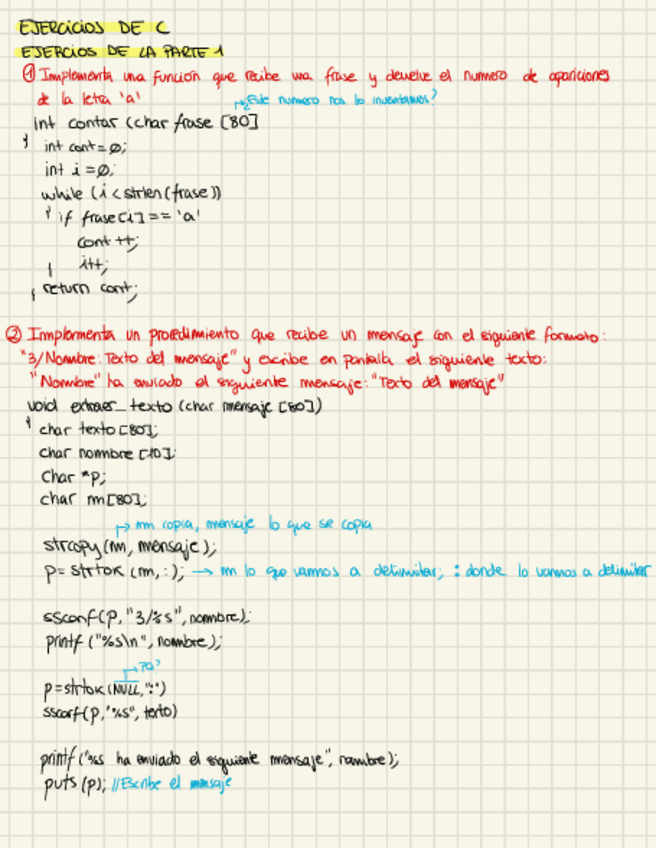 EJERCICIOS DE C
EJERCIOS DE LA PARTE 1
① Implementa una función que recibe una frase y devuelve el numero de apariciones
de la letra 'a'
↱ Este numero nos lo inventamos?
int contar (char frase [80]
{ int cont=0;
int i=0;
while (i<strlen(frase))
{ if frase[i]== 'a'
cont ++;
} i++;
} return cont;
② Implementa un procedimiento que recibe un mensaje con el siguiente formato:
"3/Nombre:Texto del mensaje" y escribe en pantalla el siguiente texto:
"Nombre" ha enviado el siguiente mensaje: "Texto del mensaje"
void extraer_texto (char mensaje [80])
{ char texto[80];
char nombre [10];
Char *p;
char m[80];
↱ m copia, mensaje lo que se copia
strcopy(m, mensaje);
p= strtok (m,:); → m lo que vamos a delimitar; : donde lo vamos a delimitar
sscanf(p, "3/%s", nombre);
printf ("%s\n", nombre);
↱ PQ?
p=strtok(NULL,":")
sscanf(p,"%s", texto)
printf ("%s ha enviado el siguiente mensaje", nombre);
puts (p); //Escribe el mensaje